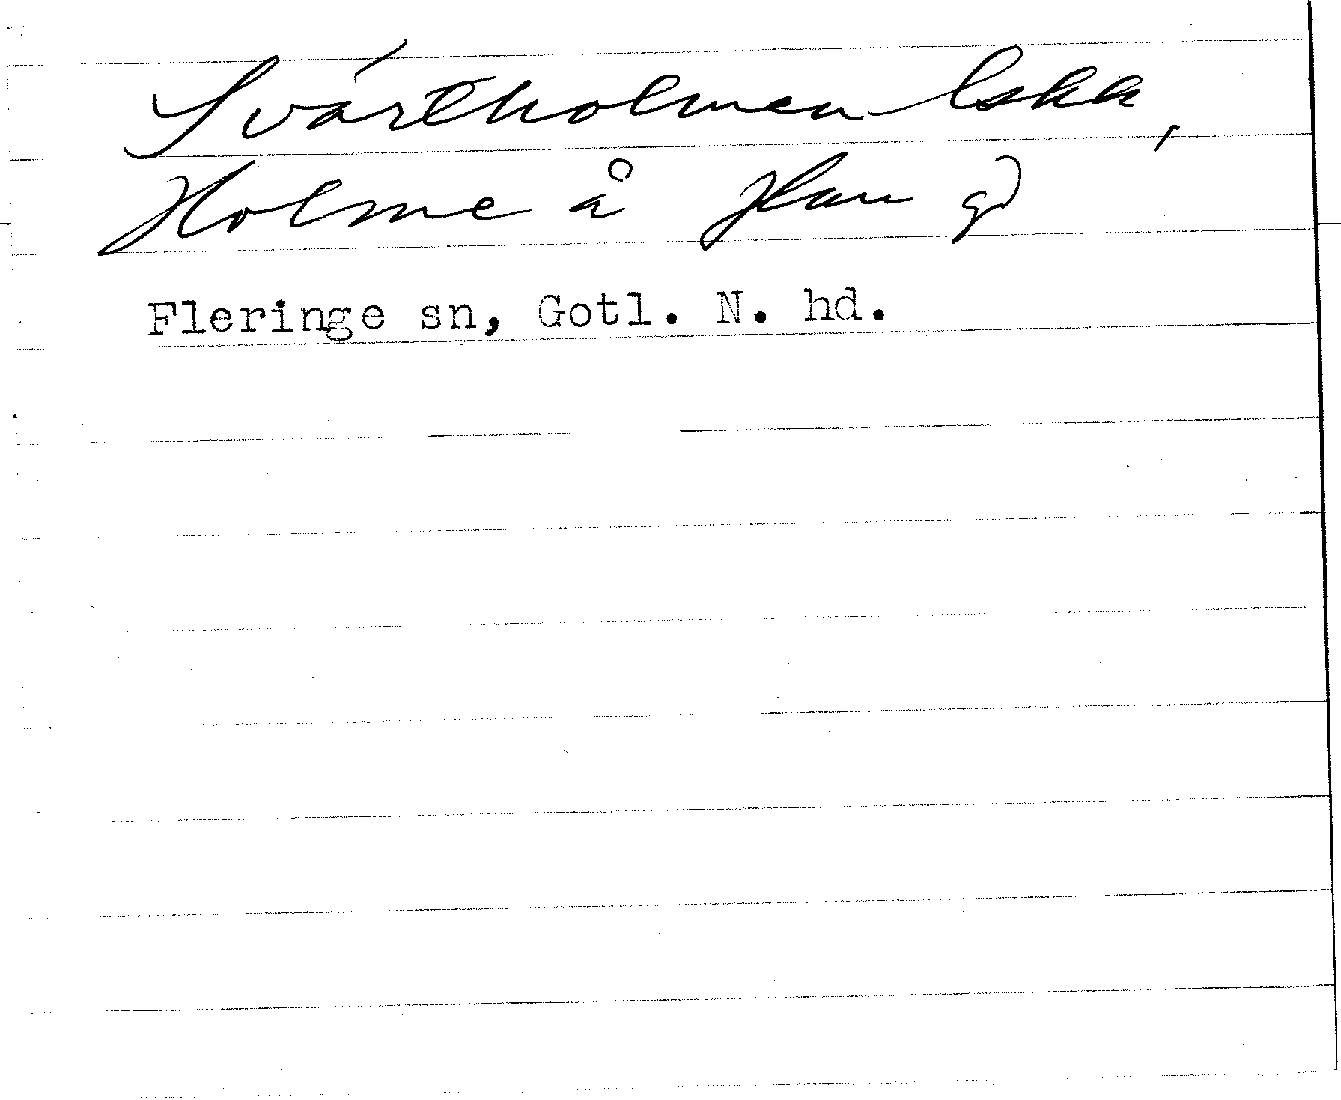 Svartholmen
Holme å Hau gd
Fleringe sn, Gotl. N. hd.